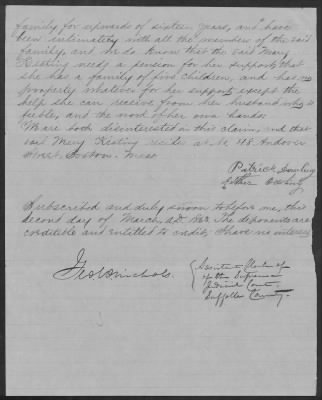 family for upwards of sixteen years, and have
been intimately with all the member of the said
family, and we do know that the said Mary
Keating needs a pension for her support that
she has a family of five children, and has no
property whatever for her support except the
help she can receive from her husband who is
feeble, and the work of her own hands.
We are both disinterested in this claim, and that
said Mary Keating resides at No 48 Andover
Street, Boston. Mass
Patrick Dowling
Esther
Subscribed and duly sworn to before me, this
second day of March, A.D. The deponents are
creditable and entitled to credit, I have no interest
Geo W Nichols.
Assistant Clerk of
of the Supreme
Judicial Court
Suffolk County.